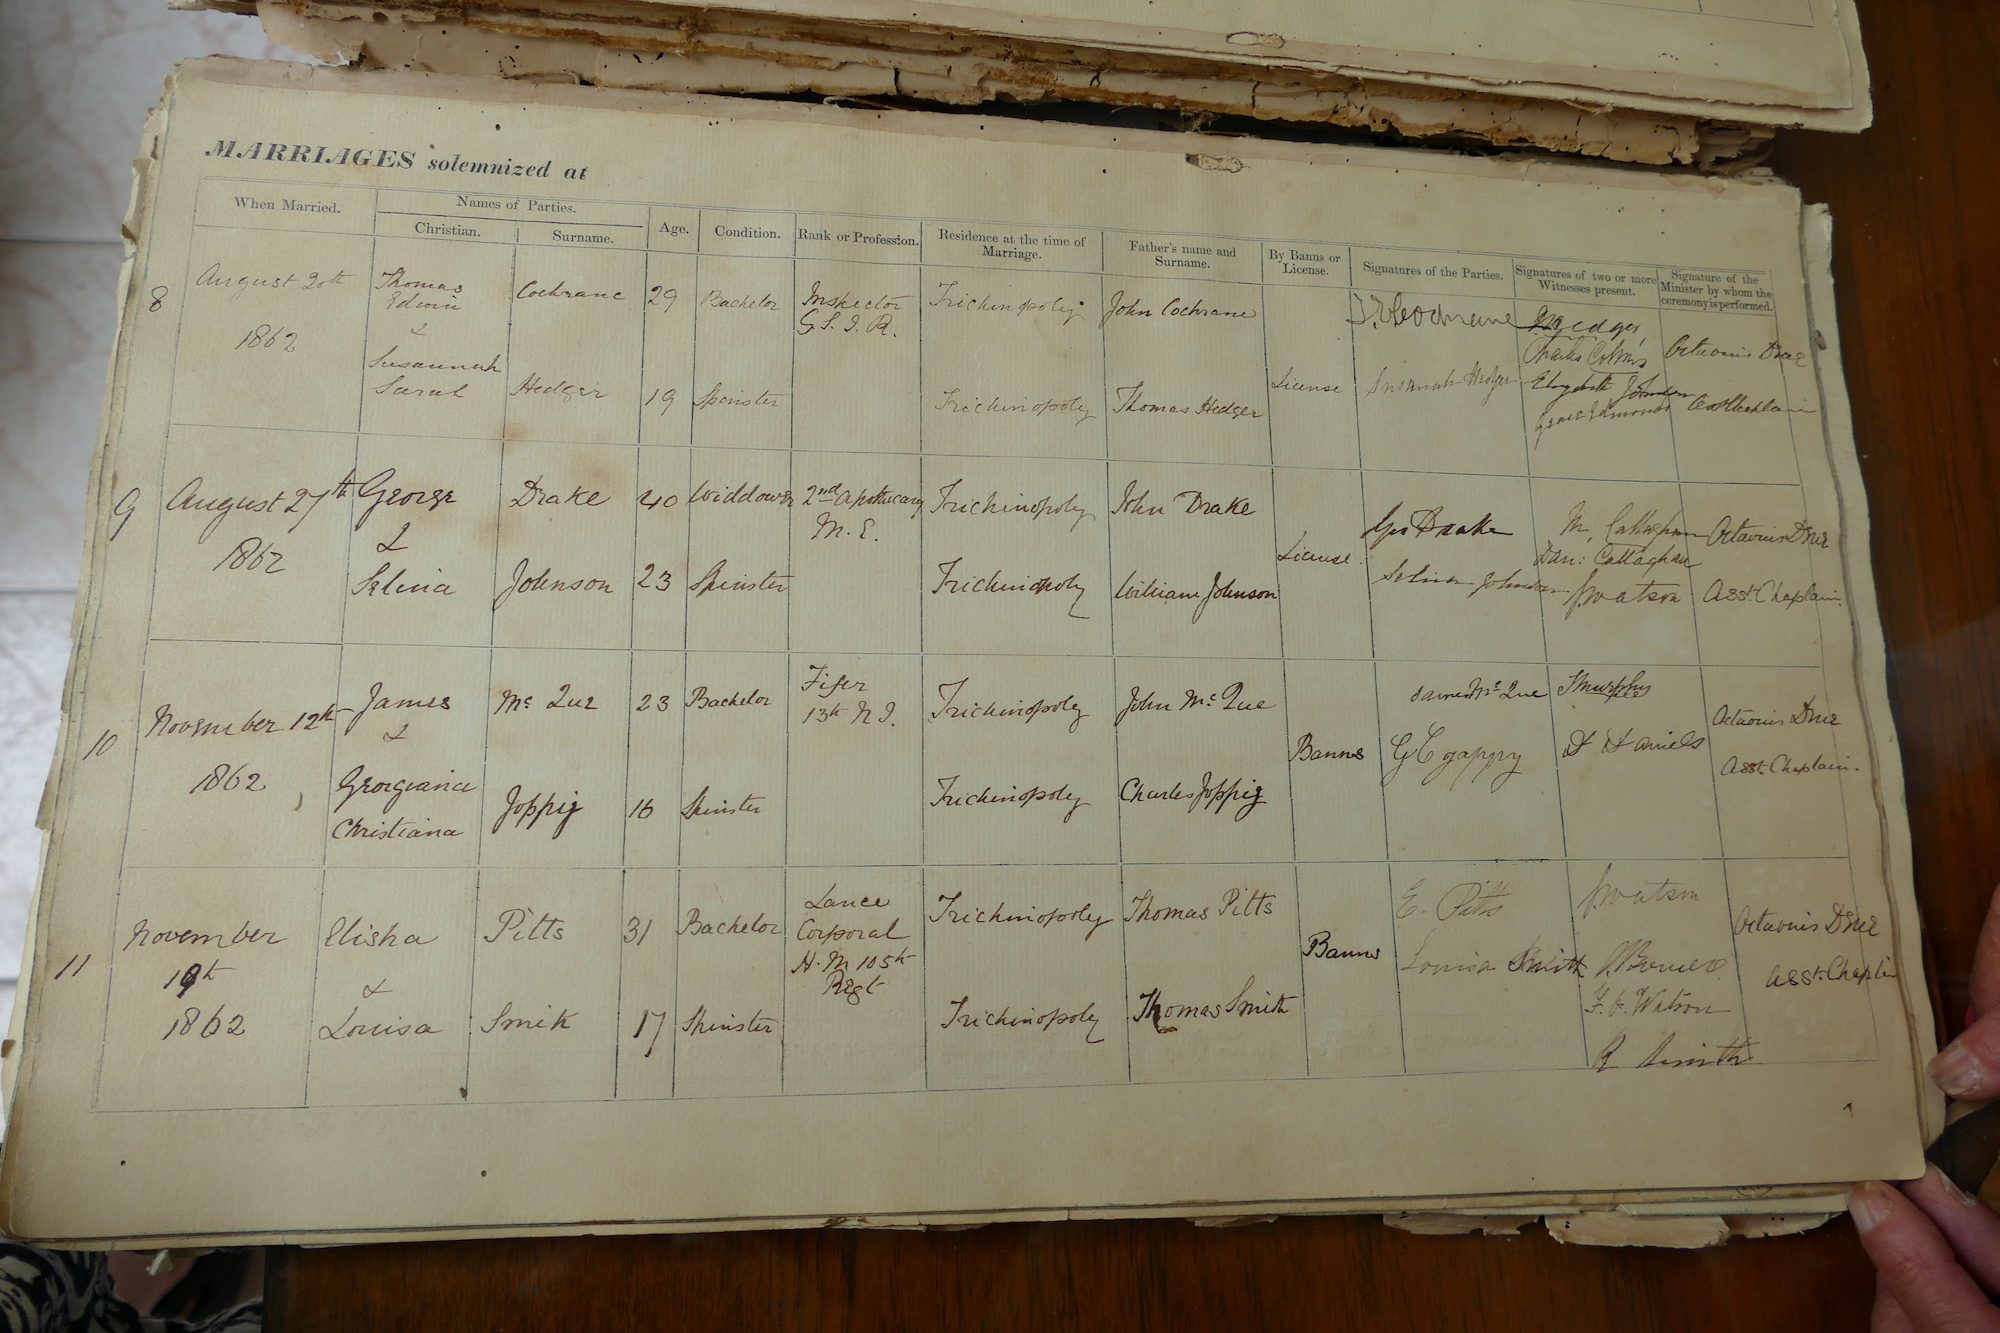 MARRIAGES solemnized at
When Married.
Names of Parties.
Christian.
Surname.
Age.
Condition.
Rank or Profession.
Residence at the time of
Marriage.
Father's name and
Surname.
By Banns or
License.
Signatures of the Parties.
Signatures of two or more
Witnesses present.
Signature of the
Minister by whom the
ceremony is performed.
8
August 20th
1862
Thomas
Edwin
&
Susannah
Sarah
Cochrane
Hedger
29
19
Bachelor
Spinster
Inspector
G. S. I. R.
Trichinopoly
Trichinopoly
John Cochrane
Thomas Hedger
License
T. E. Cochrane
Susannah Hedger
Hedger
Charles
Johnson
Edmonds
Octavius
Asst Chaplain
9
August 27th
1862
George
&
Selina
Drake
Johnson
40
23
Widdower
Spinster
2nd Apothecary
M. E.
Trichinopoly
Trichinopoly
John Drake
William Johnson
License.
Geo Drake
Selina Johnson
M. Callaghan
Dan: Callaghan
J Watson
Octavius
Asst. Chaplain.
10
November 12th
1862
James
&
Georgiana
Christiana
Mc Que
Joppig
23
16
Bachelor
Spinster
Fifer
13th N. I.
Trichinopoly
Trichinopoly
John Mc Que
Charles Joppig
Banns
James Mc Que
G C
Murphy
Daniels
Octavius
Asst. Chaplain.
11
November
19th
1862
Elisha
&
Louisa
Pitts
Smith
31
17
Bachelor
Spinster
Lance
Corporal
H. M 105th
Regt
Trichinopoly
Trichinopoly
Thomas Pitts
Thomas Smith
Banns
E. Pitts
Louisa Smith
J Watson
Watson
R Smith
Octavius
Asst. Chaplin